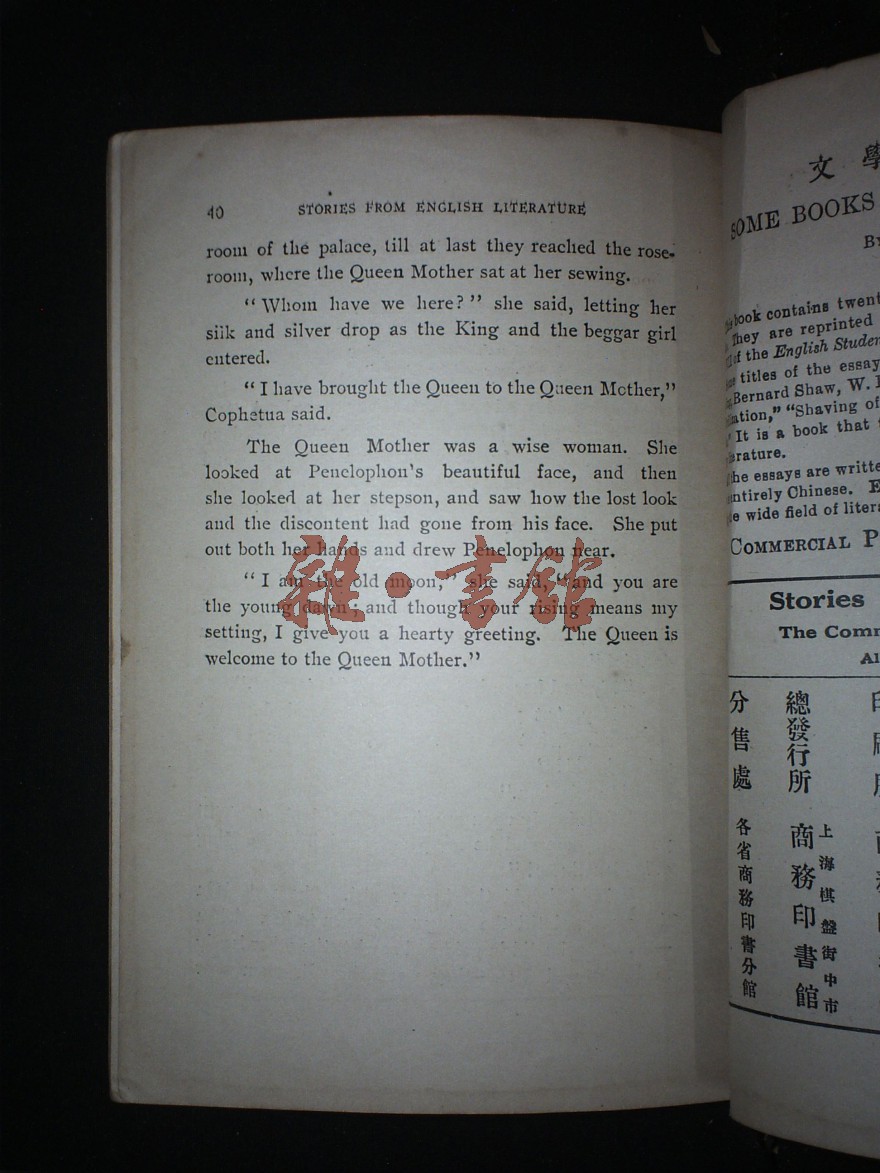 40 STORIES FROM ENGLISH LITERATURE
room of the palace, till at last they reached the rose-
room, where the Queen Mother sat at her sewing.
“Whom have we here?” she said, letting her
silk and silver drop as the King and the beggar girl
entered.
“I have brought the Queen to the Queen Mother,”
Cophetua said.
The Queen Mother was a wise woman. She
looked at Penelophon's beautiful face, and then
she looked at her stepson, and saw how the lost look
and the discontent had gone from his face. She put
out both her hands and drew Penelophon near.
“I am the old moon,” she said, “and you are
the young dawn; and though your rising means my
setting, I give you a hearty greeting. The Queen is
welcome to the Queen Mother.”
雜·書館
文學
SOME BOOKS
book contains twent
They are reprinted
of the English Studen
titles of the essay
Bernard Shaw, W.
“Shaving of
It is a book that
the essays are writte
entirely Chinese.
wide field of litera
COMMERCIAL P
Stories
The Comm
Al
總發行所
上海棋盤街中市
商務印書館
分售處
各省商務印書分館